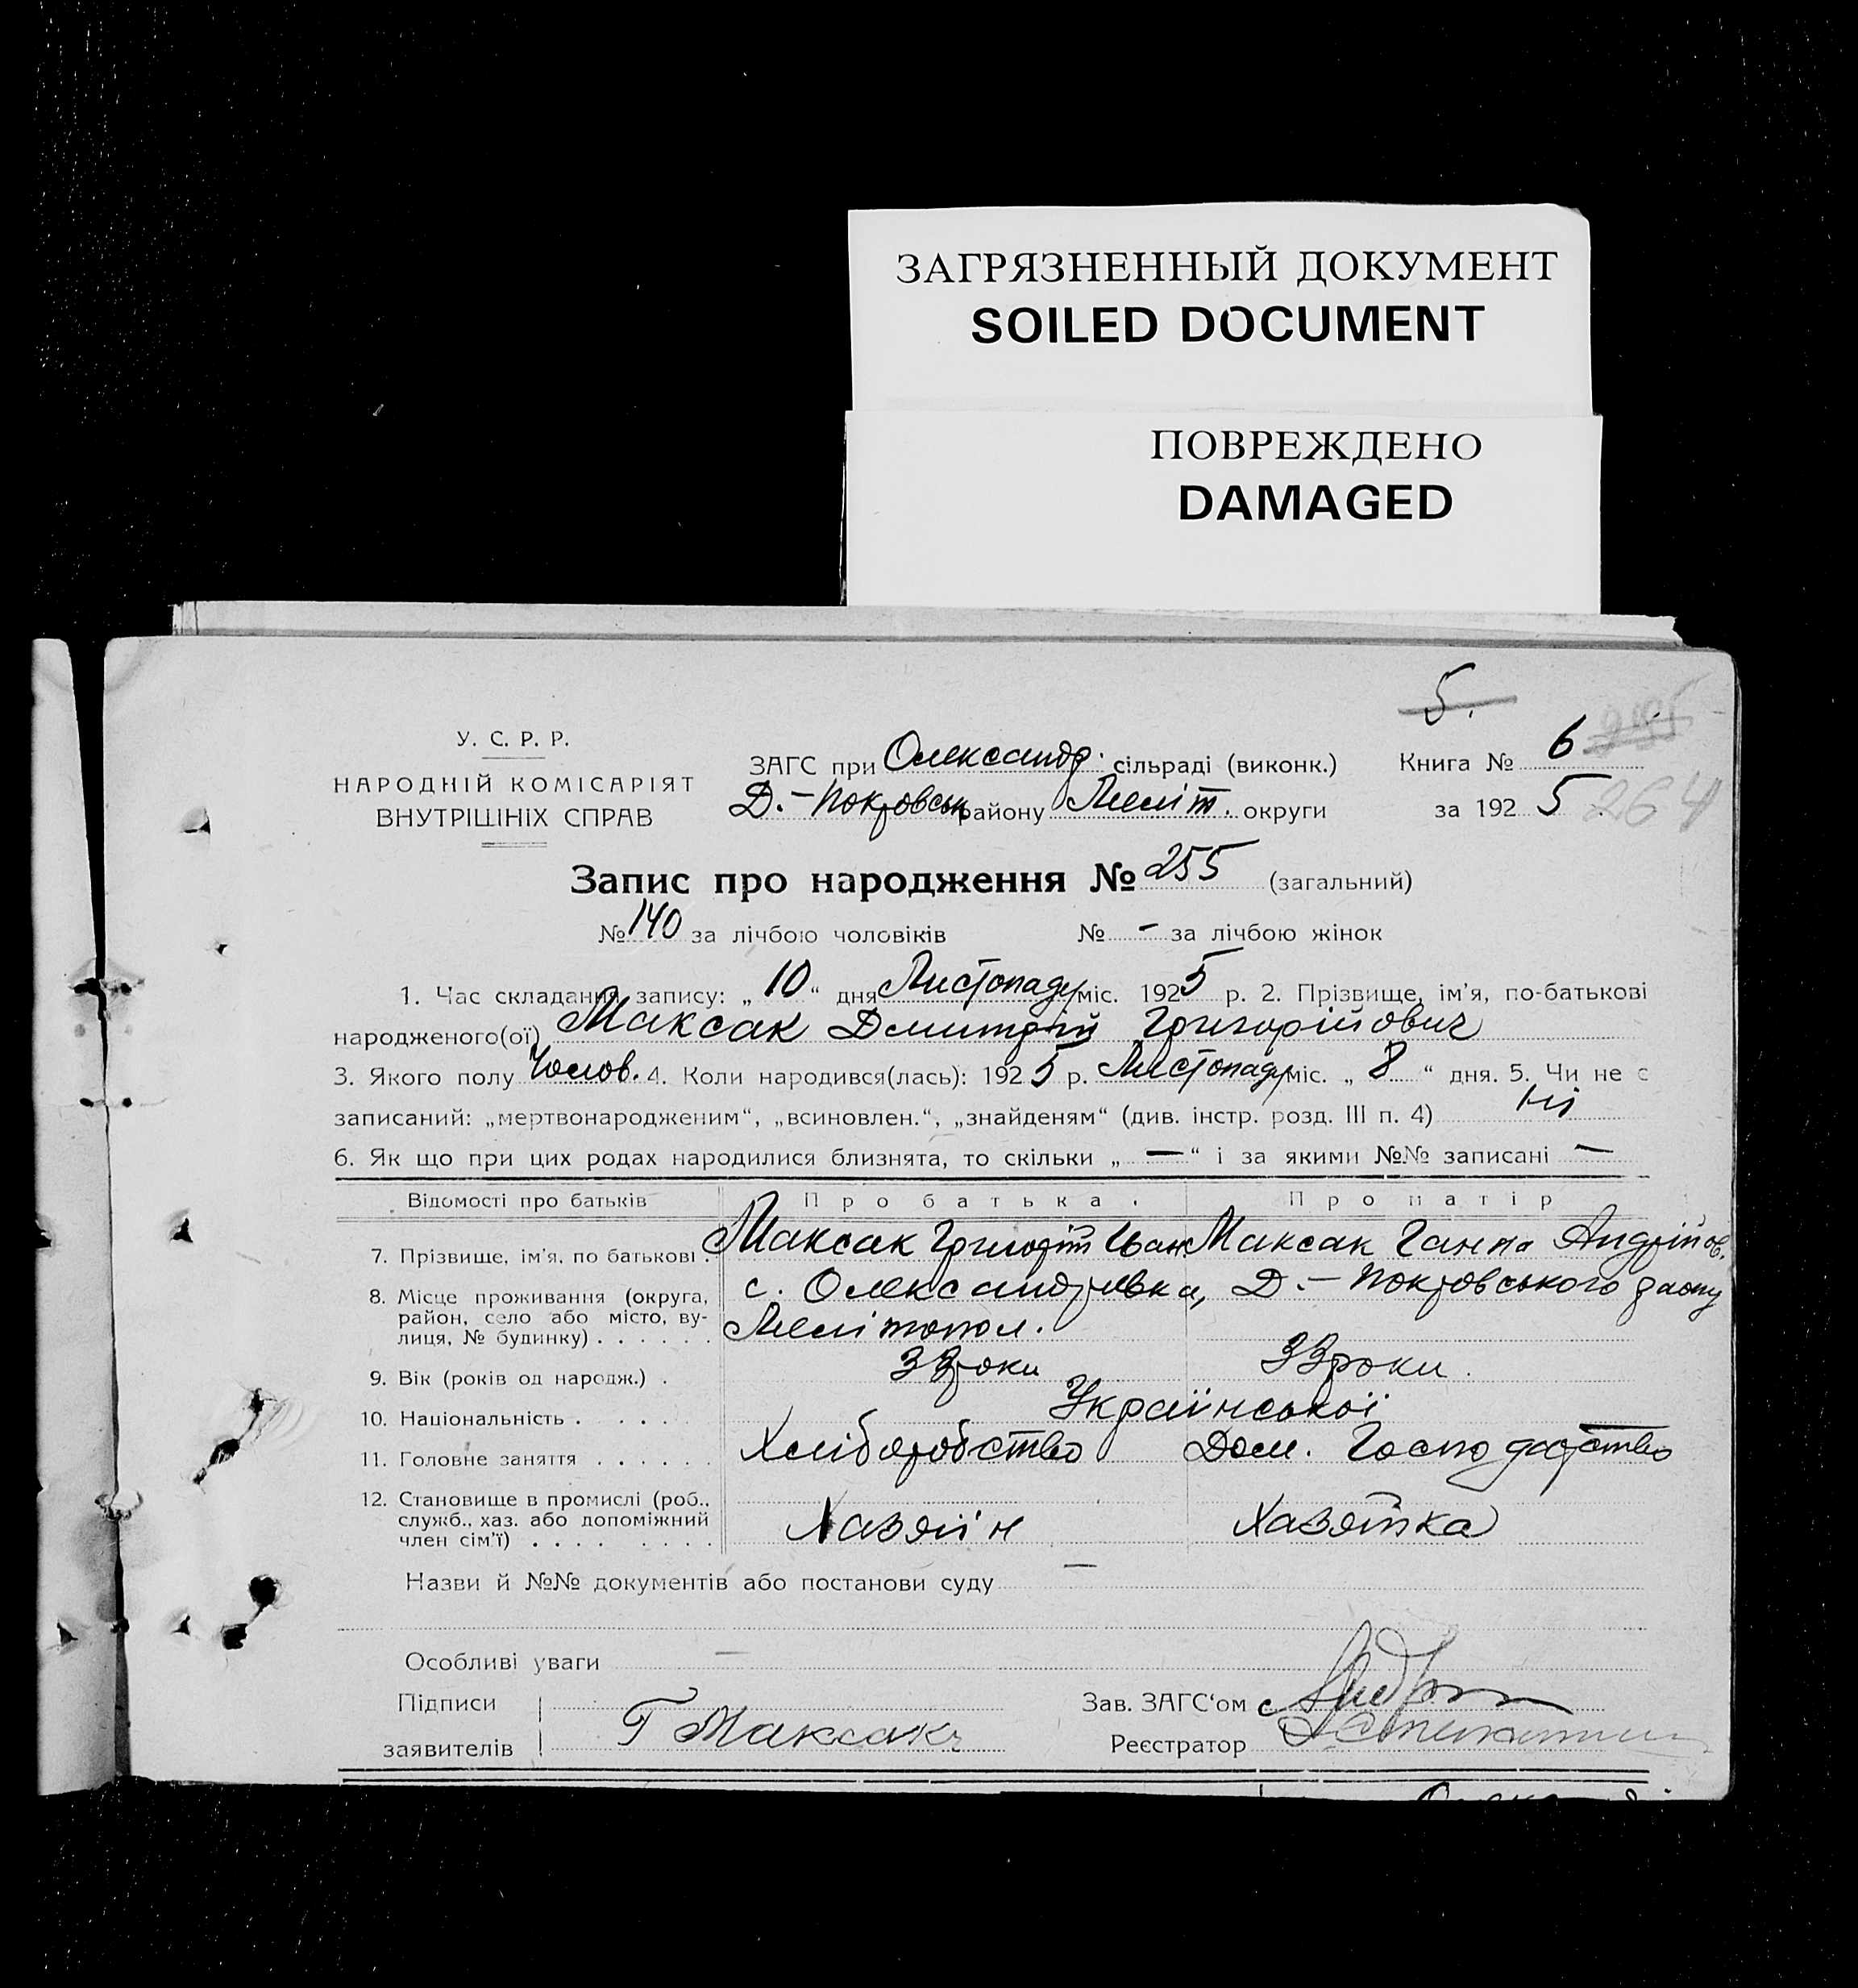 ЗАГРЯЗНЕННЫЙ ДОКУМЕНТ
SOILED DOCUMENT
ПОВРЕЖДЕНО
DAMAGED
5.
У. С. Р. Р.
НАРОДНІЙ КОМІСАРІЯТ
ВНУТРІШНІХ СПРАВ
ЗАГС при Олександр. сільраді (виконк.)
Д.-Покровськ району Меліт. округи
Книга № 6
за 1925
264
Запис про народження № 255 (загальний)
№ 140 за лічбою чоловіків № - за лічбою жінок
1. Час складання запису: „10“ дня Листопаду міс. 1925 р. 2. Прізвище, ім'я, по-батькові
народженого(ої) Максак Дмитрій Григорійович
3. Якого полу Чолов. 4. Коли народився(лась): 1925 р. Листопаду міс. „8“ дня. 5. Чи не є
записаний: „мертвонародженим“, „всиновлен.“, „знайденям“ (див. інстр. розд. III п. 4) ні
6. Як що при цих родах народилися близнята, то скільки „—“ і за якими №№ записані —
Відомості про батьків Про батька. Про матір
7. Прізвище, ім'я, по батькові . Максак Григорій Іван Максак Ганна Андрійов.
8. Місце проживання (округа, район, село або місто, вулиця, № будинку) . . . . . . с. Олександрівка, Д.-Покровського раону
Мелітопол.
9. Вік (років од народж.) . 33 роки 33 роки.
10. Національність . . . . . Української
11. Головне заняття . . . . . . Хліборобство Дом. Господарство
12. Становище в промислі (роб., служб., хаз. або допоміжний член сім'ї) . . . . . . . . Хазяїн Хазяйка
Назви й №№ документів або постанови суду —
Особливі уваги —
Підписи
заявителів Г Максак
Зав. ЗАГС‘ом
Реєстратор